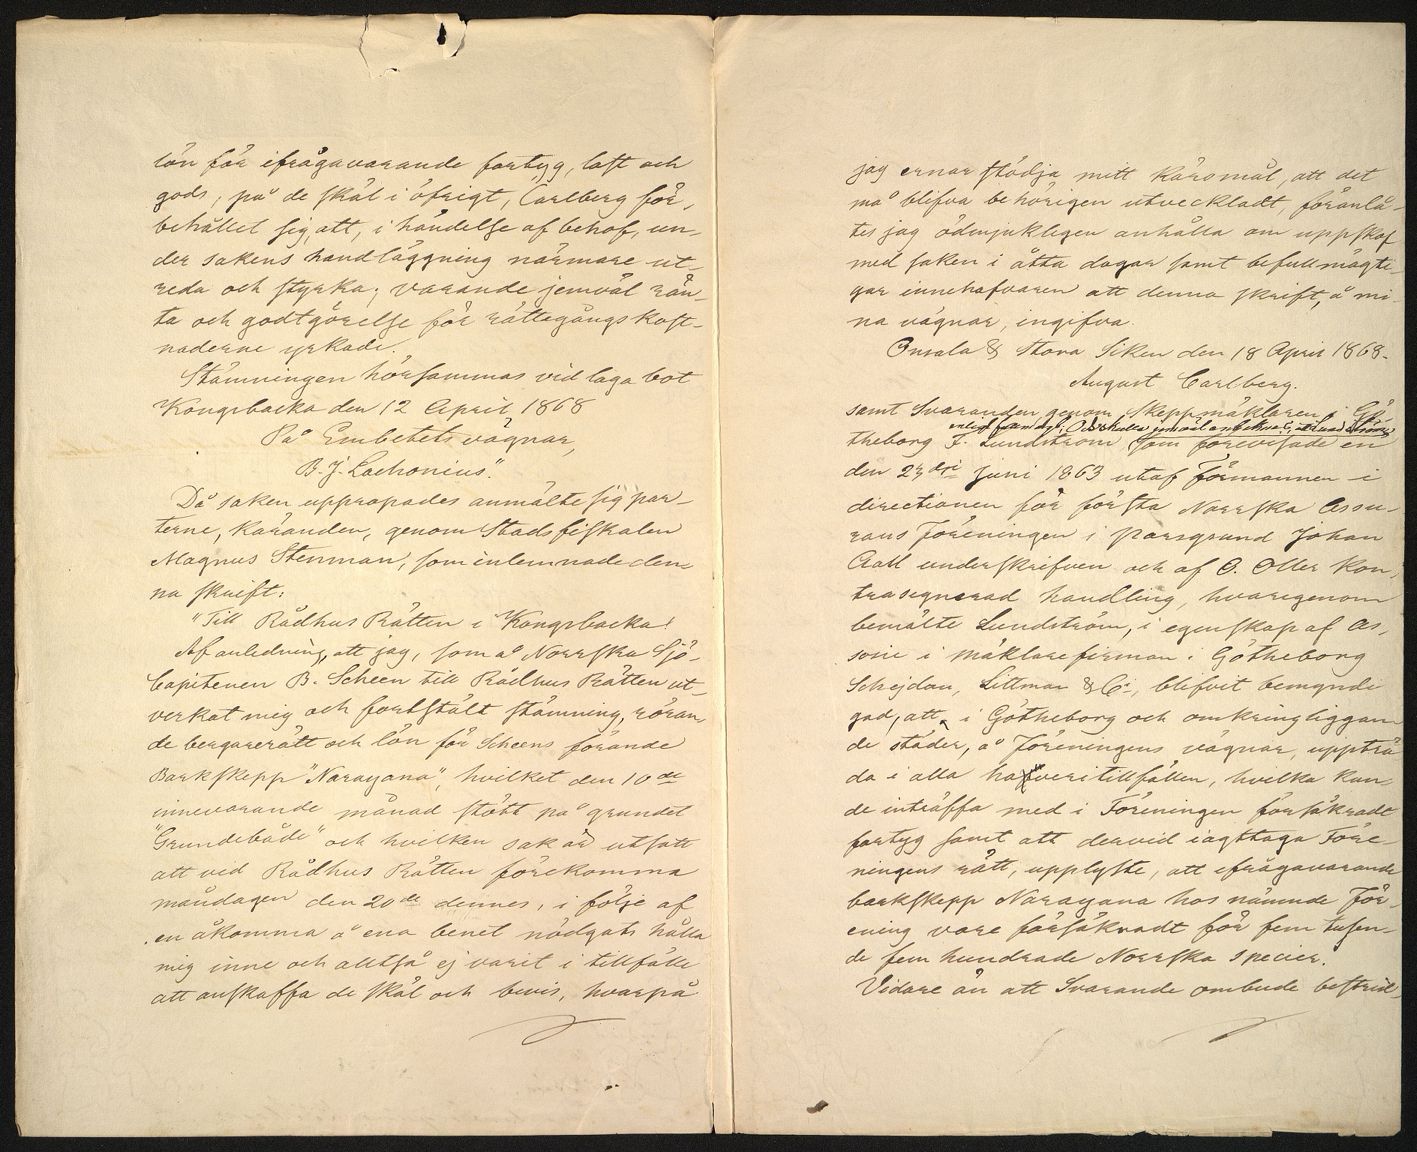 lön för ifrågavarande fartyg, last och
gods, på de skäl i öfrigt, Carlberg för,
behållet sig, att, i händelse af behof, un-
der sakens handläggning närmare ut-
reda och styrka; varande jemväl rän-
ta och godtgörelse för rättegångskost-
naderne yrkade.
Stämningen hörsammas vid laga bot
Kongsbacka den 12 April 1868
På Embetets vägnar,
B. J. Lachonius".
Då saken uppropades anmälte sig par-
terne, Käranden, genom Stadsfiskalen
Magnus Stenman, som inlemnade den-
na skrift:
"Till Rådhus Rätten i Kongsbacka!
Af anledning, att jag, som å Norrska Sjö-
Capitenen B. Scheen till Rådhus Rätten ut-
verkat mig och fortställt stämning, röran-
de bergarerätt och lön för Scheens förande
Barkskepp "Narayana", hvilket den 10de
innevarande månad stött på grundet
"Grundebåde" och hvilken sak är utsatt
att vid Rådhus Rätten förekomma
måndagen den 20de dennes, i följe af
en åkomma å ena benet nödgats hålla
mig inne och alltså ej varit i tillfälle
att anskaffa de skäl och bevis, hvarpå
jag ernar stödja mitt käromål, att det
må blifva behörigen utveckladt, föranlå-
tes jag ödmjukligen anhålla om uppskof
med saken i åtta dagar samt befullmägti-
gar innehafvaren att denna skrift, å mi-
na vägnar, ingifva.
Onsala & Stora Siken den 18 April 1868.
August Carlberg.
samt Svaranden genom Skeppsmäklaren i Gö-
theborg F. Lundström som förevisade en
den 23dri Juni 1863 utaf Förmannen i
directionen för första Norrska Assu-
rans Föreningen i Porsgrund Johan
Aall underskrifven och af O. Oller kon-
trasignerad handling, hvarigenom
bemälte Lundström, i egenskap af As-
socie i mäklarefirman i Götheborg
Schejdan, Littman & Co, blifvit bemyndi
gad, att, i Götheborg och omkringliggan-
de städer, å Föreningens vägnar, uppträ
da i alla haveritillfällen, hvilka kun-
de inträffa med i Föreningen försäkradt
fartyg samt att dervid iagttaga Före-
ningens rätt, upplyste, att ifrågavarande
barkskepp Narayana hos nämnde För-
ening vore försäkradt för fem tusen-
de fem hundrade Norrska Specier.
Vidare än att Svarande ombude bestrid-